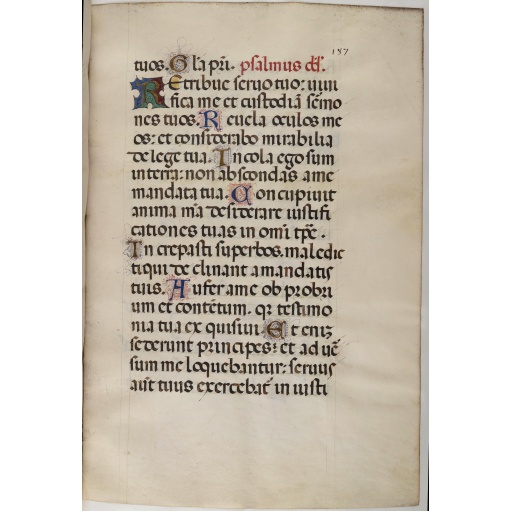 187
tuos. Gl'a pr̄i. psalmus dd̄.
Retribue seruo tuo: uiui
fica me et custodiā s̄emo
nes tuos. Reuela oculos me
os: et considerabo mirabilia
de lege tua. Incola ego sum
in terra: non abscondas a me
mandata tua. Concupiuit
anima m̄a desiderare iustifi
cationes tuas in omī tp̄e.
Increpasti superbos. maledic
ti qui declinant a mandatis
tuis. Aufer a me obprobri
um et contēmtum. qꝛ testimo
nia tua exquisiui. Et eniꝫ
sederunt principes: et aduē
sum me loquebantur: seruus
aut̄ tuus exercebat̄ in iusti